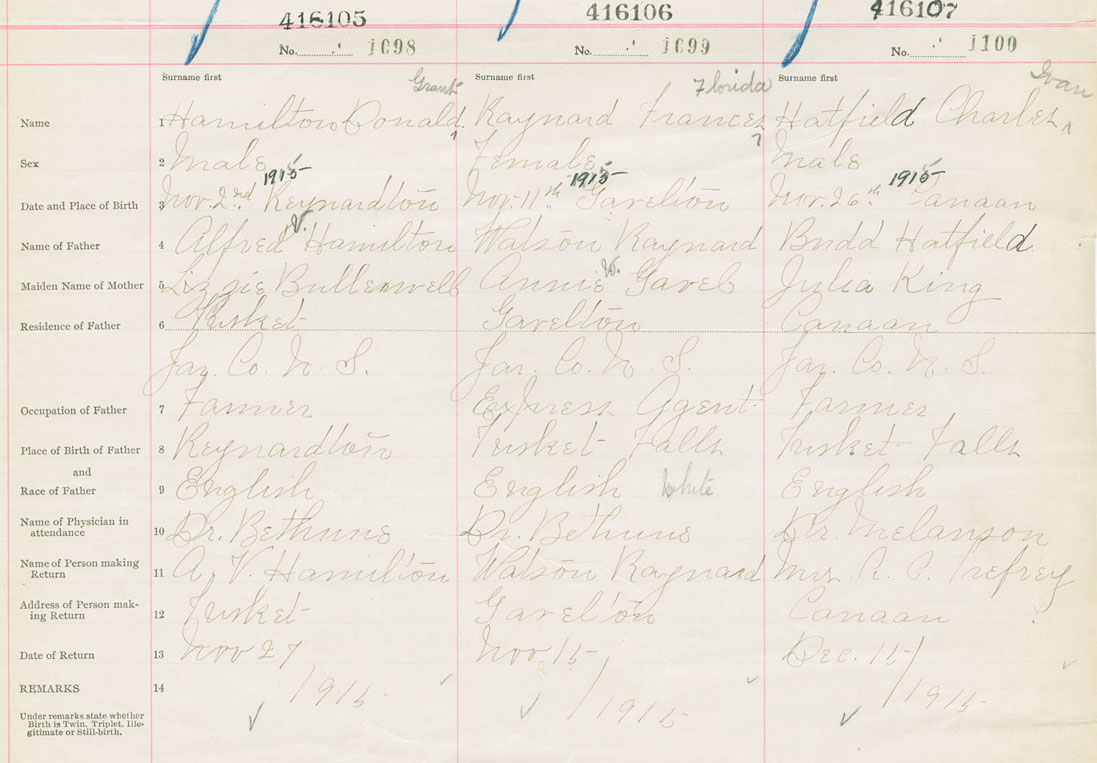 416105 416106 416107
No. 1098 No. 1099 No. 1100
Surname first Surname first Surname first
Grant Florida Ivan
Name 1 Hamilton Donald ^ Raynard Frances ^ Hatfield Charles ^
Sex 2 Male Female Male
1915 1915 1915
Date and Place of Birth 3 Nov. 2nd Reynardton Nov. 11th Gavelton Nov. 26th Canaan
Name of Father 4 Alfred V. Hamilton Watson Raynard Budd Hatfield
Maiden Name of Mother 5 Lizzie Bullerwell Annie W. Gavel Julia King
Residence of Father 6 Tusket Gavelton Canaan
Yar. Co. N. S. Yar. Co. N. S. Yar. Co. N. S.
Occupation of Father 7 Farmer Express Agent Farmer
Place of Birth of Father 8 Reynardton Tusket Falls Tusket Falls
and
Race of Father 9 English English White English
Name of Physician in attendance 10 Dr. Bethune Dr. Bethune Dr. Melanson
Name of Person making Return 11 A. V. Hamilton Watson Raynard Mrs. A. C. Trefrey
Address of Person making Return 12 Tusket Gavelton Canaan
Date of Return 13 Nov 27 Nov. 15 Dec. 15
REMARKS 14 / 1915 / 1915 / 1915
Under remarks state whether
Birth is Twin, Triplet, Ille-
gitimate or Still-birth.